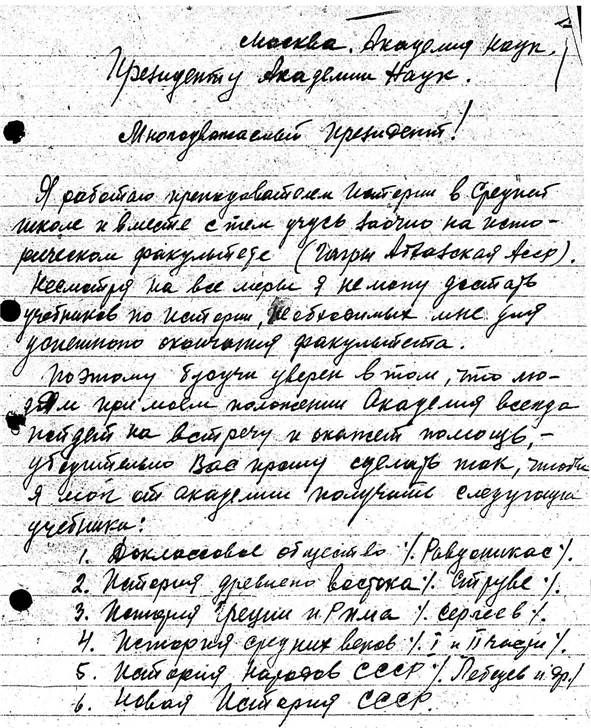 Москва. Академия наук.
Президенту Академии Наук.
Многоуважаемый президент!
Я работаю преподавателем истории в средней
школе и вместе с тем учусь заочно на исто-
рическом факультете (Гагры Абхазская Асср).
Несмотря на все меры я не могу достать
учебников по истории, необходимых мне для
успешного окончания факультета.
Поэтому будучи уверен в том, что лю-
дям при моем положении Академия всегда
пойдет на встречу и окажет помощь,-
убедительно Вас прошу сделать так, чтобы
я мог от академии получить следующие
учебники:
1. Доклассовое общество ·/. Равдоникас ·/.
2. История древнего востока ·/. Струве ·/.
3. История Греции и Рима ·/. Сергеев ·/.
4. История средних веков ·/. I и II части ·/.
5. История народов СССР ·/. Лебедев и др ·/
6. Новая История СССР.